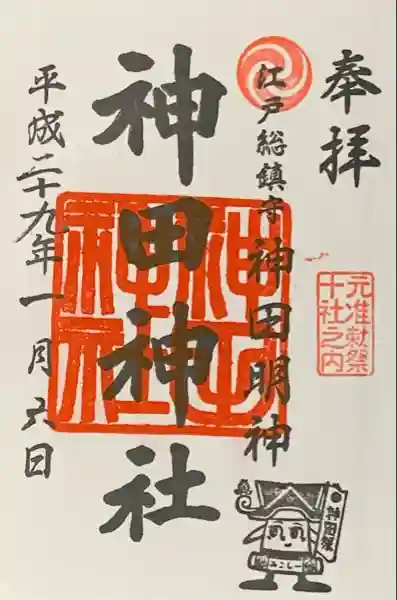 奉拝
元准勅祭
十社之内
江戸総鎮守神田明神
神田神社
神田
神社
平成二十九年一月六日
神田祭
みこしー